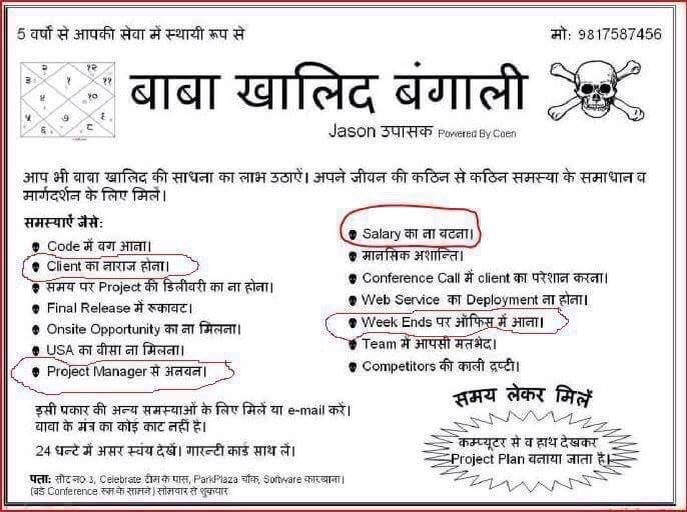 5 वर्षो से आपकी सेवा में स्थायी रूप से
मो: 9817587456
२ १२
३ १ ११
४ १०
५ ७ ९
६ ८
बाबा खालिद बंगाली
Jason उपासक Powered By Coen
आप भी बाबा खालिद की साधना का लाभ उठाऐं। अपने जीवन की कठिन से कठिन समस्या के समाधान व
मार्गदर्शन के लिए मिलें।
समस्याऐं जैसे:
Code में बग आना।
Client का नाराज होना।
समय पर Project की डिलीवरी का ना होना।
Final Release में रूकावट।
Onsite Opportunity का ना मिलना।
USA का वीसा ना मिलना।
Project Manager से अनबन।
Salary का ना बढना।
मानसिक अशान्ति।
Conference Call में client का परेशान करना।
Web Service का Deployment ना होना।
Week Ends पर ऑफिस में आना।
Team में आपसी मतभेद।
Competitors की काली द्रष्टी।
इसी प्रकार की अन्य समस्याओं के लिए मिलें या e-mail करें।
बाबा के मंत्र का कोई काट नहीं है।
24 घन्टे में असर स्वंय देखें। गारन्टी कार्ड साथ लें।
समय लेकर मिलें
कम्प्यूटर से व हाथ देखकर
Project Plan बनाया जाता है।
पता: सीट नo 3, Celebrate टीम के पास, ParkPlaza चौंक, Software कारखाना।
(बडे Conference रूम के सामने) सोमवार से शुक्रवार